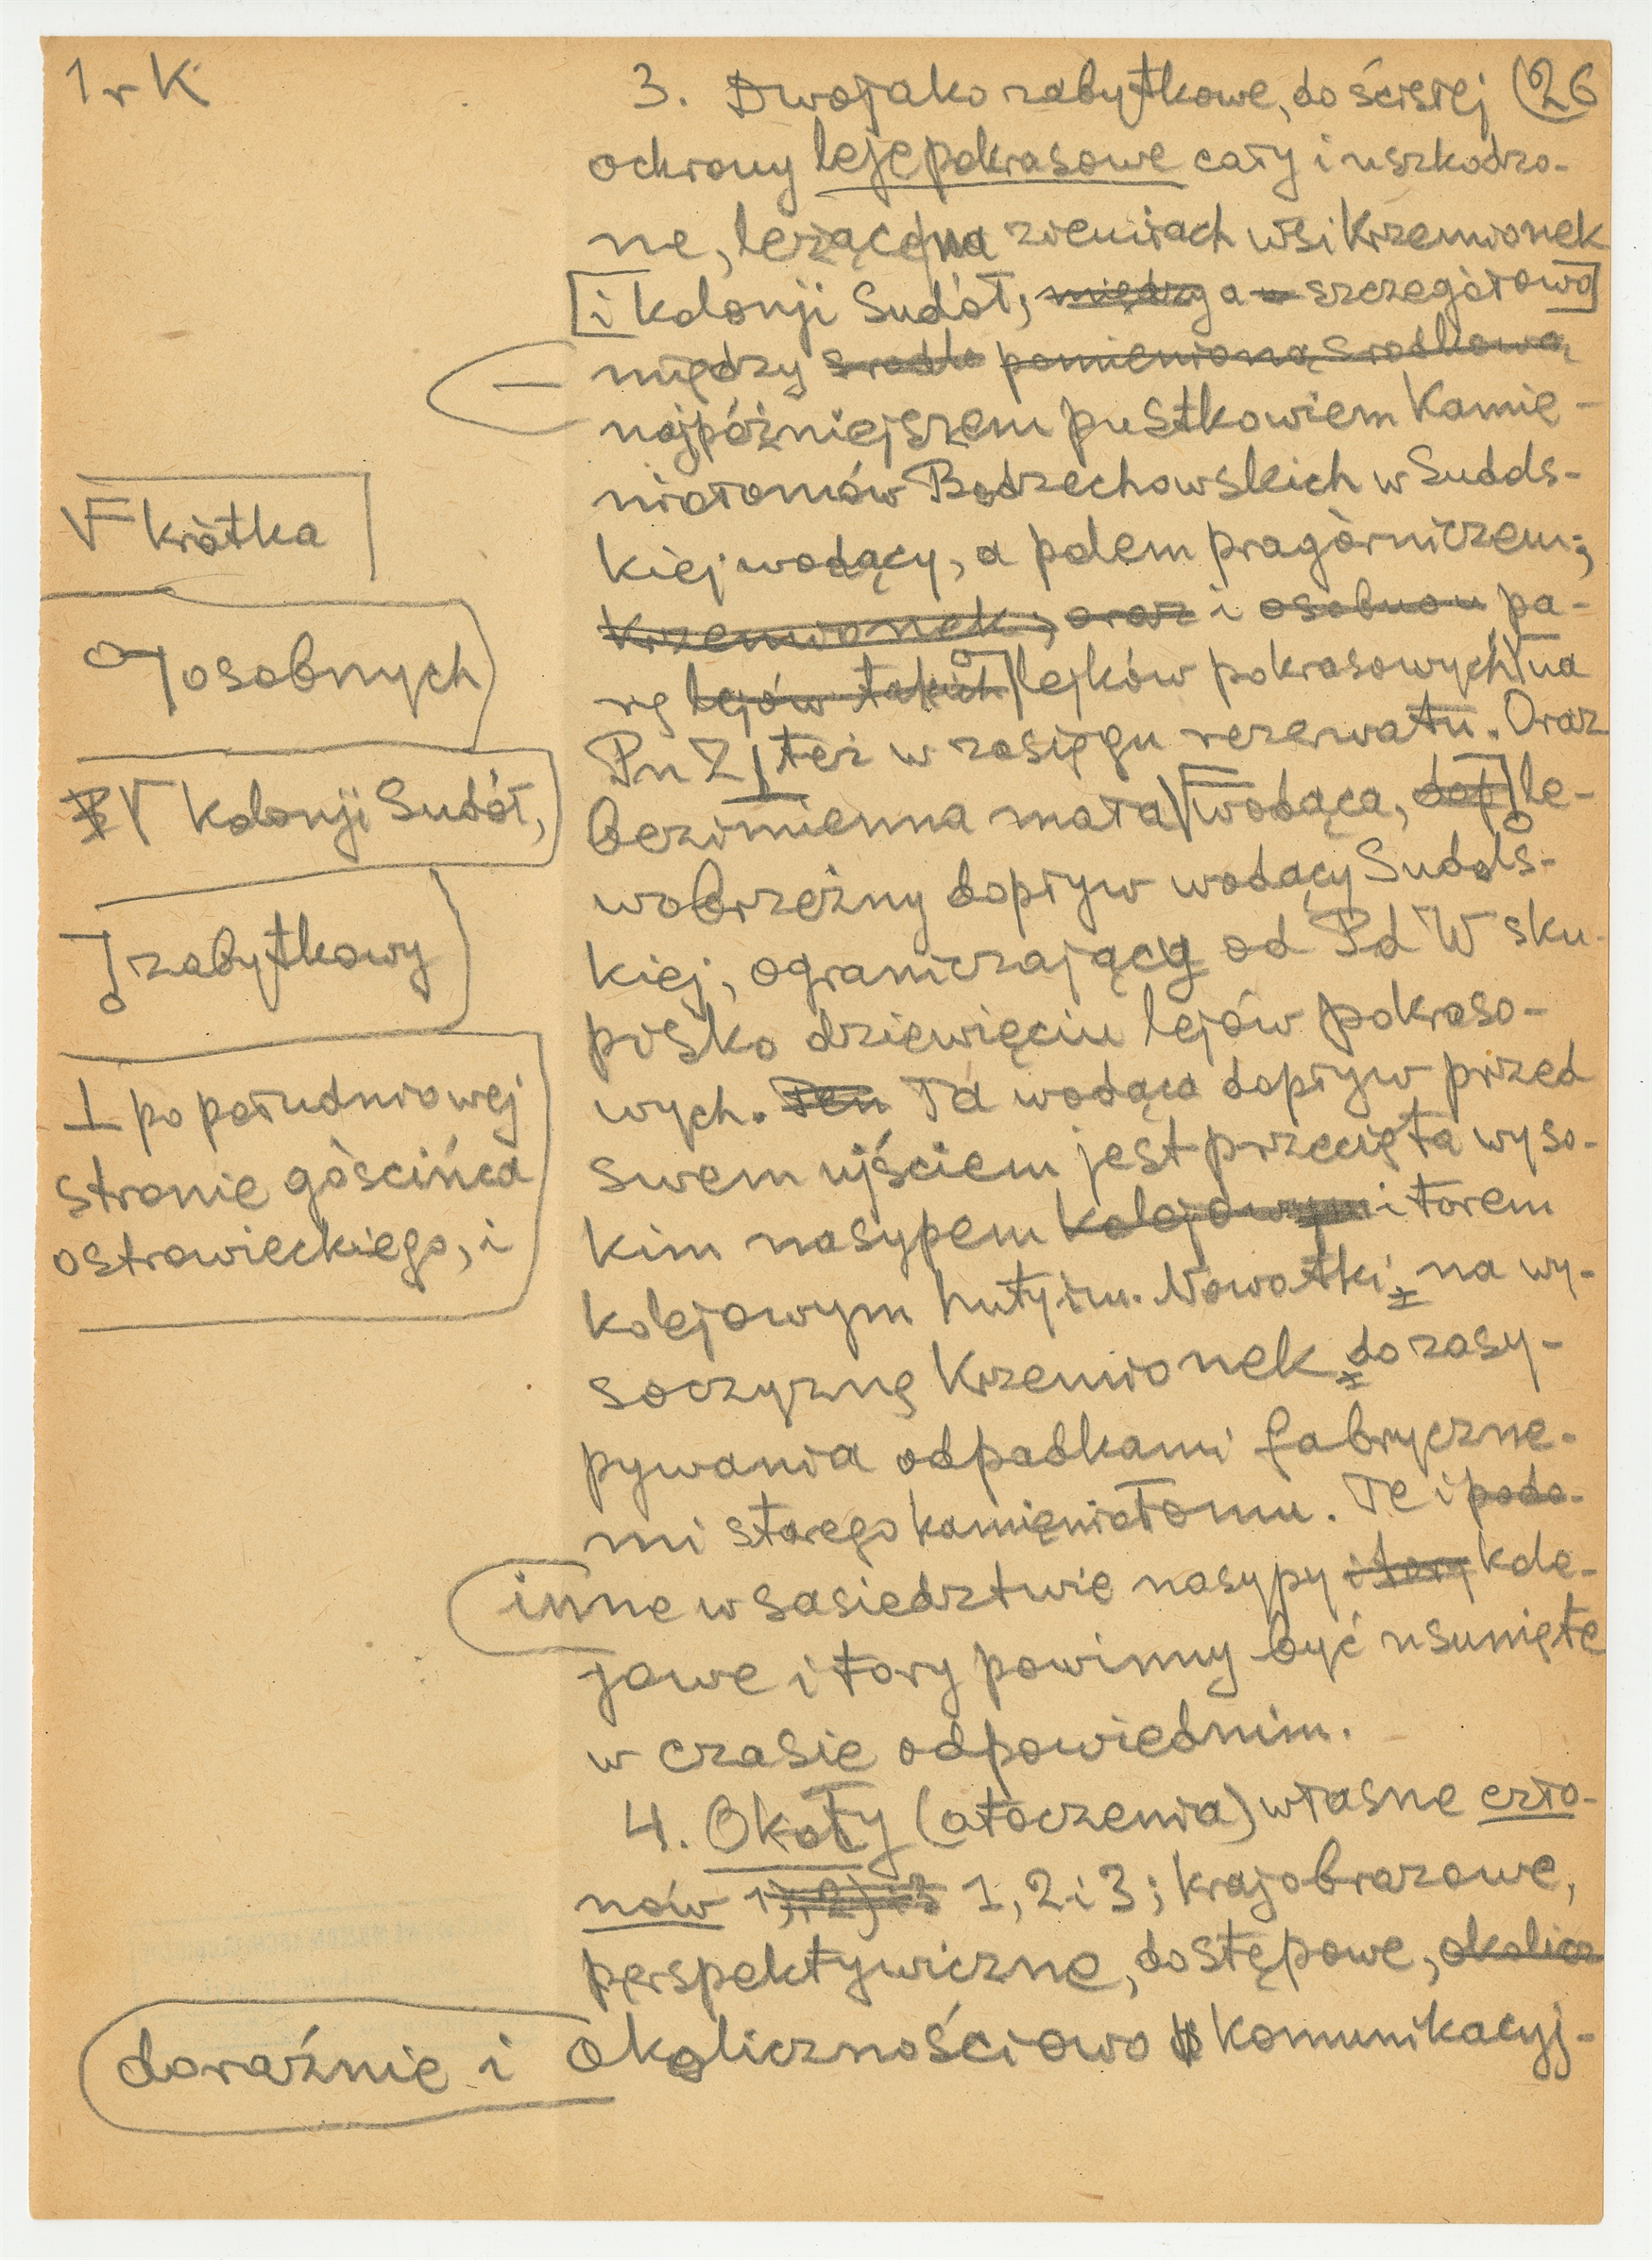 1 r K
3. Dwojako zabytkowe, do ścisłej (26
ochrony leje pokrasowe cały i uszkodzo-
ne, leżące na ziemiach wsi Krzemionek
[i kolonji Sudół, między a szczegółowo]
między środko pomienioną środkową
najpóźniejszem pustkowiem Kamie-
niołomów Bodzechowskich w Sudols-
kiej wodący, a polem pragórniczem;
Krzemionek; oraz i osobnou pa-
rę lejów takich lejków pokrasowych na
Pn Z też w zasięgu rezerwatu. Oraz
bezimienna mała wodąca, dop le-
wobrzeżny dopływ wodący Sudols-
kiej, ograniczający od Pd W sku-
pisko dziewięciu lejów pokraso-
wych. Ten Ta wodąca dopływ przed
swem ujściem jest przecięta wyso-
kim nasypem kolejowym i torem
kolejowym huty im. Nowotki na wy-
soczyznę Krzemionek do zasy-
pywania odpadkami fabryczne-
mi starego kamieniołomu. Te i podo-
inne w sasiedztwie nasypy i tory kole-
jowe i tory powinny być usunięte
w czasie odpowiednim.
4. Okoły (otoczenia) własne czło-
nów 1), 2) i 3 1, 2 i 3; krajobrazowe,
perspektywiczne, dostępowe, okolicz
doraźnie i okolicznościowo komunikacyj-
krótka
osobnych
kolonji Sudół,
zabytkowy
⊥ po południowej
stronie gościńca
ostrowieckiego, i